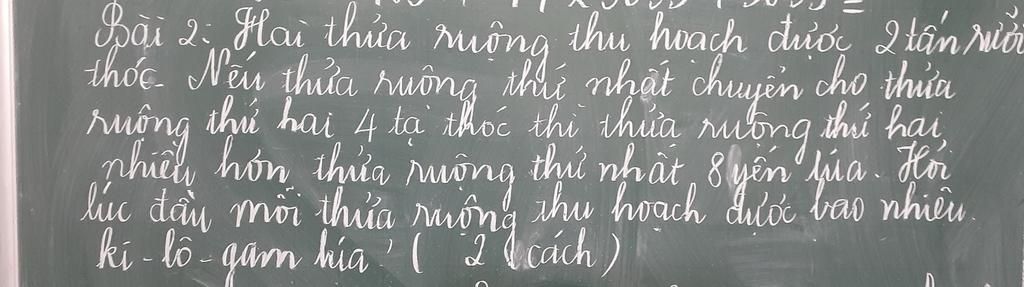 Bài 2: Hai thửa ruộng thu hoạch được 2 tấn rưỡi
thóc. Nếu thửa ruộng thứ nhất chuyển cho thửa
ruộng thứ hai 4 tạ thóc thì thửa ruộng thứ hai
nhiều hơn thửa ruộng thứ nhất 8 yến lúa. Hỏi
lúc đầu mỗi thửa ruộng thu hoạch được bao nhiêu
ki-lô-gam lúa? (2 cách)